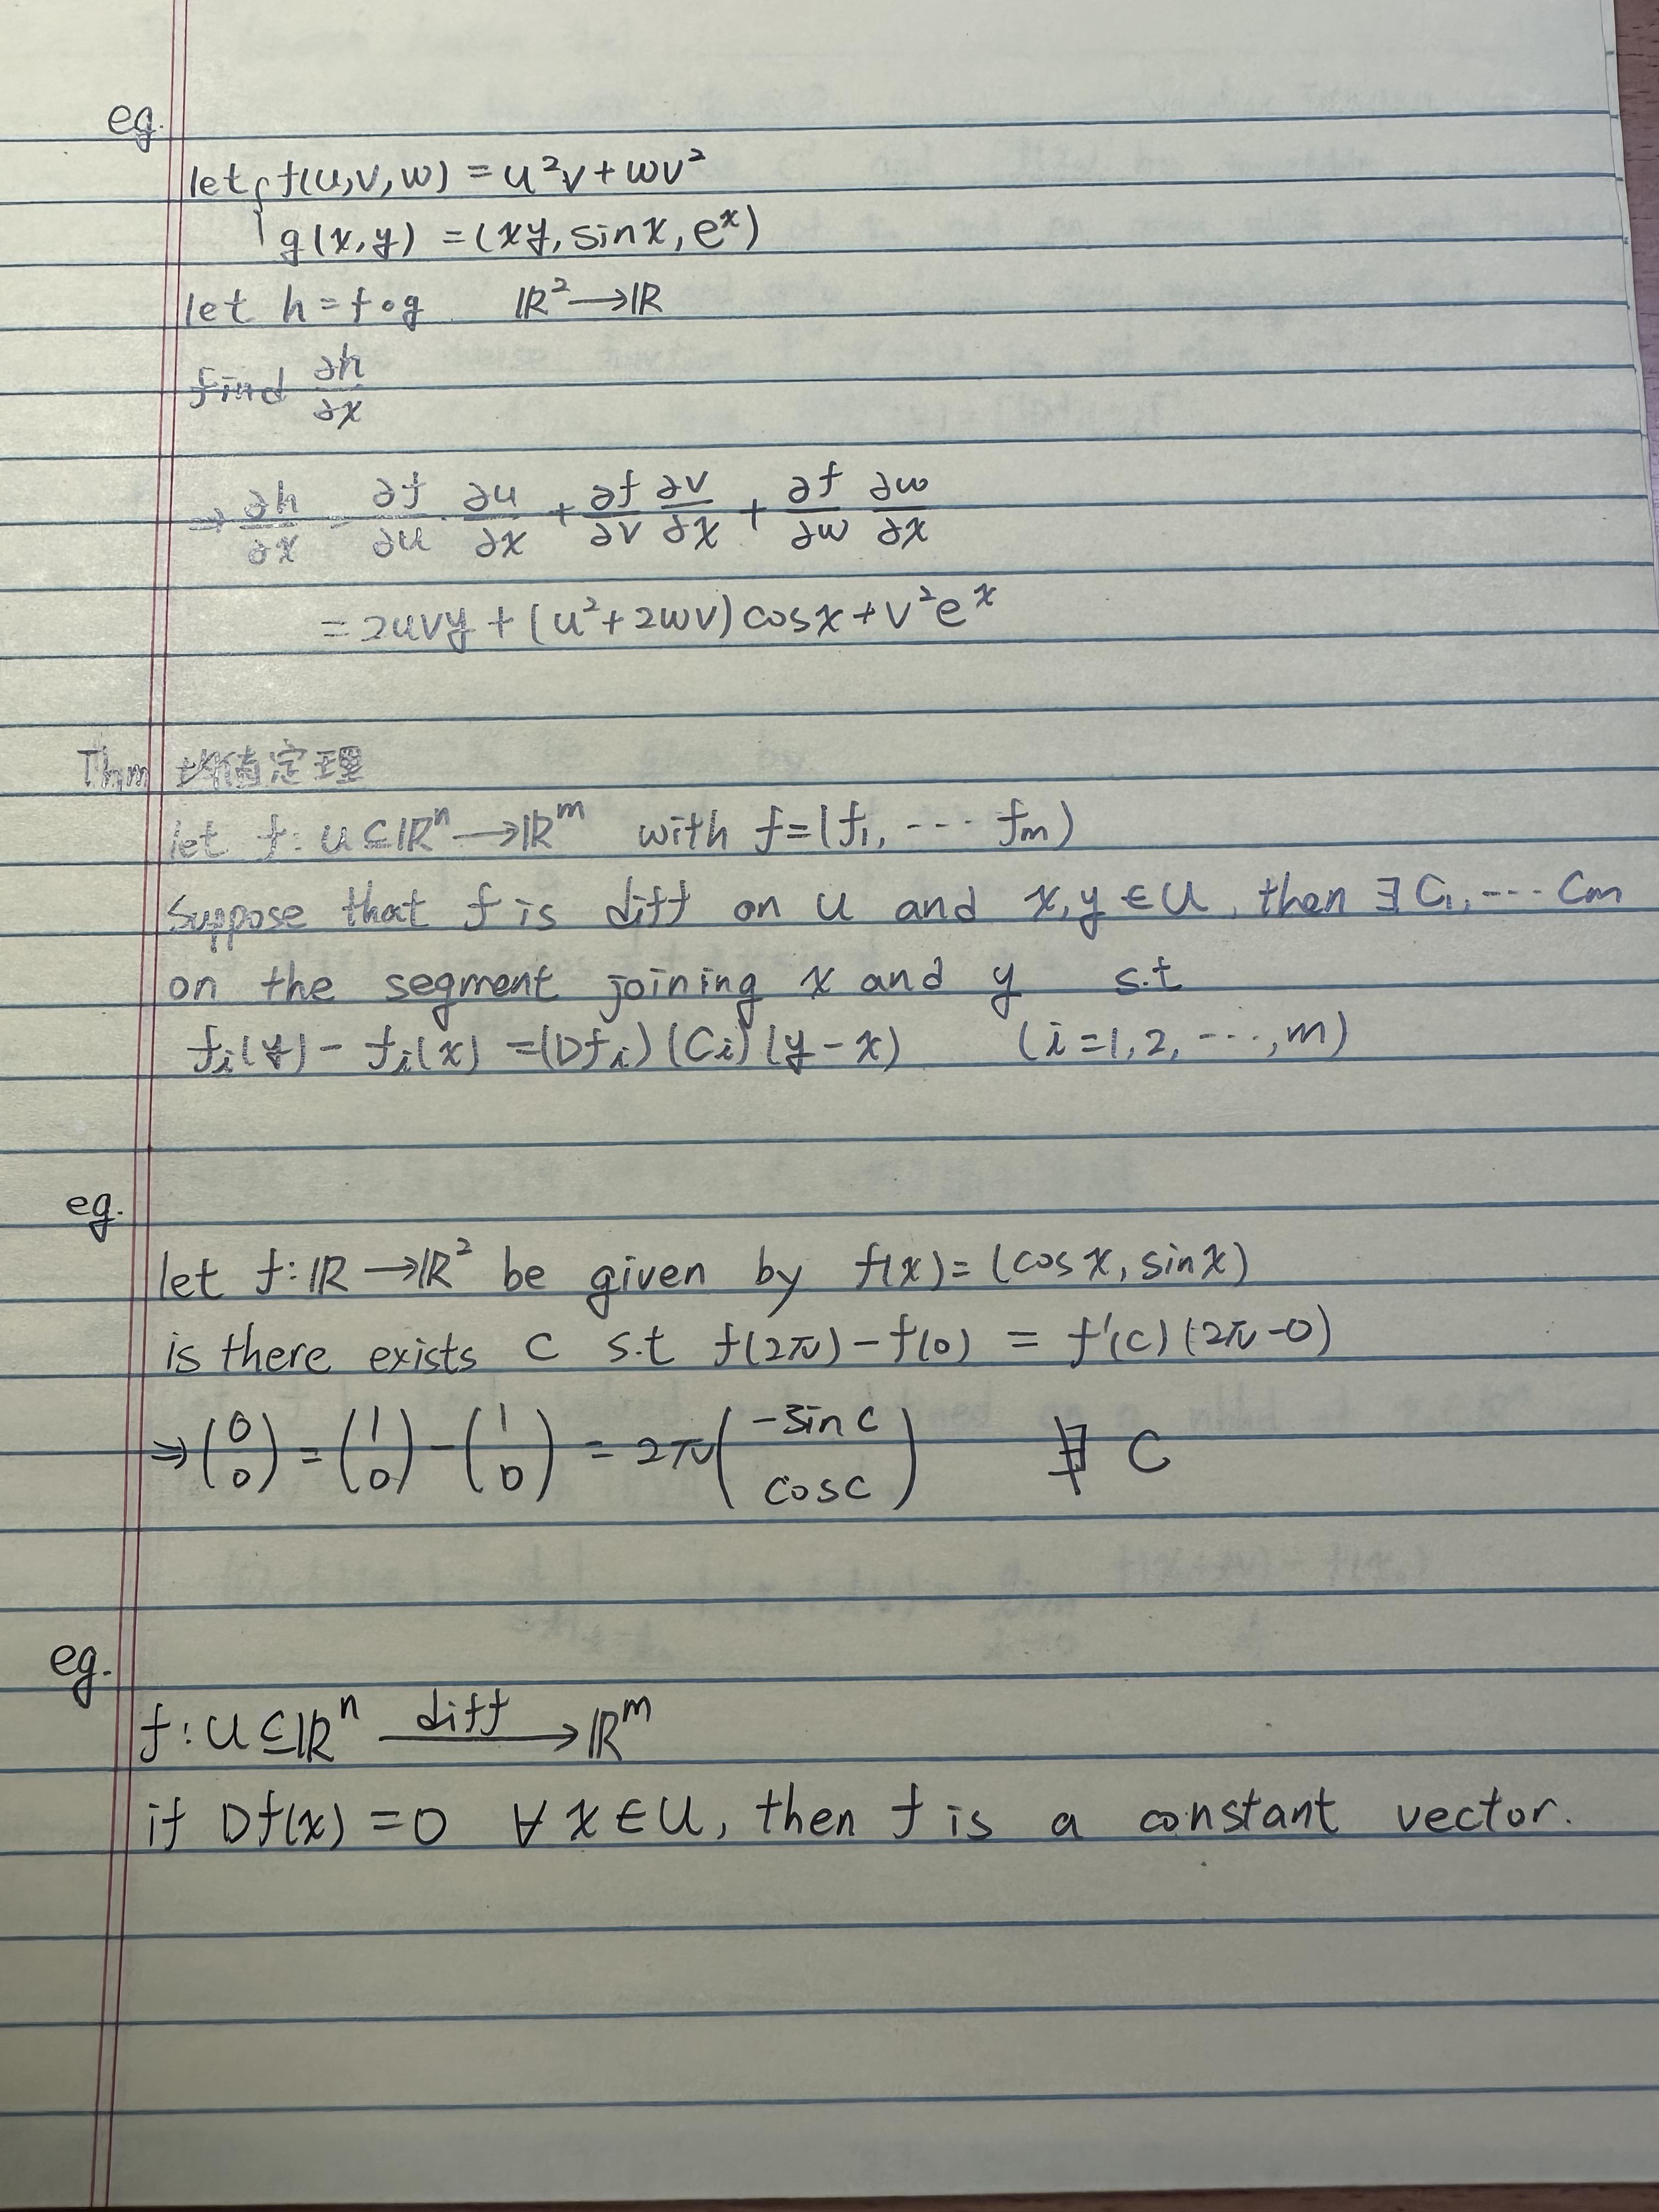 eg.
let { f(u,v,w) = u²v + wv²
g(x,y) = (xy, sinx, eˣ)
let h = f∘g ℝ² → ℝ
find ∂h/∂x
⇒ ∂h/∂x = ∂f/∂u · ∂u/∂x + ∂f/∂v ∂v/∂x + ∂f/∂w ∂w/∂x
= 2uvy + (u² + 2wv) cosx + v²eˣ
Thm 均值定理
let f: U ⊆ ℝⁿ → ℝᵐ with f = (f₁, ... fₘ)
Suppose that f is diff on U and x, y ∈ U, then ∃ C₁, ... Cₘ
on the segment joining x and y s.t
fᵢ(y) - fᵢ(x) = (Dfᵢ)(Cᵢ)(y - x) (i = 1, 2, ..., m)
eg.
let f: ℝ → ℝ² be given by f(x) = (cosx, sinx)
is there exists C s.t f(2π) - f(0) = f'(C)(2π - 0)
⇒ (0 0) = (1 0) - (1 0) = 2π (-sinc cosc) ∄ C
eg.
f: U ⊆ ℝⁿ diff → ℝᵐ
if Df(x) = 0 ∀ x ∈ U, then f is a constant vector.